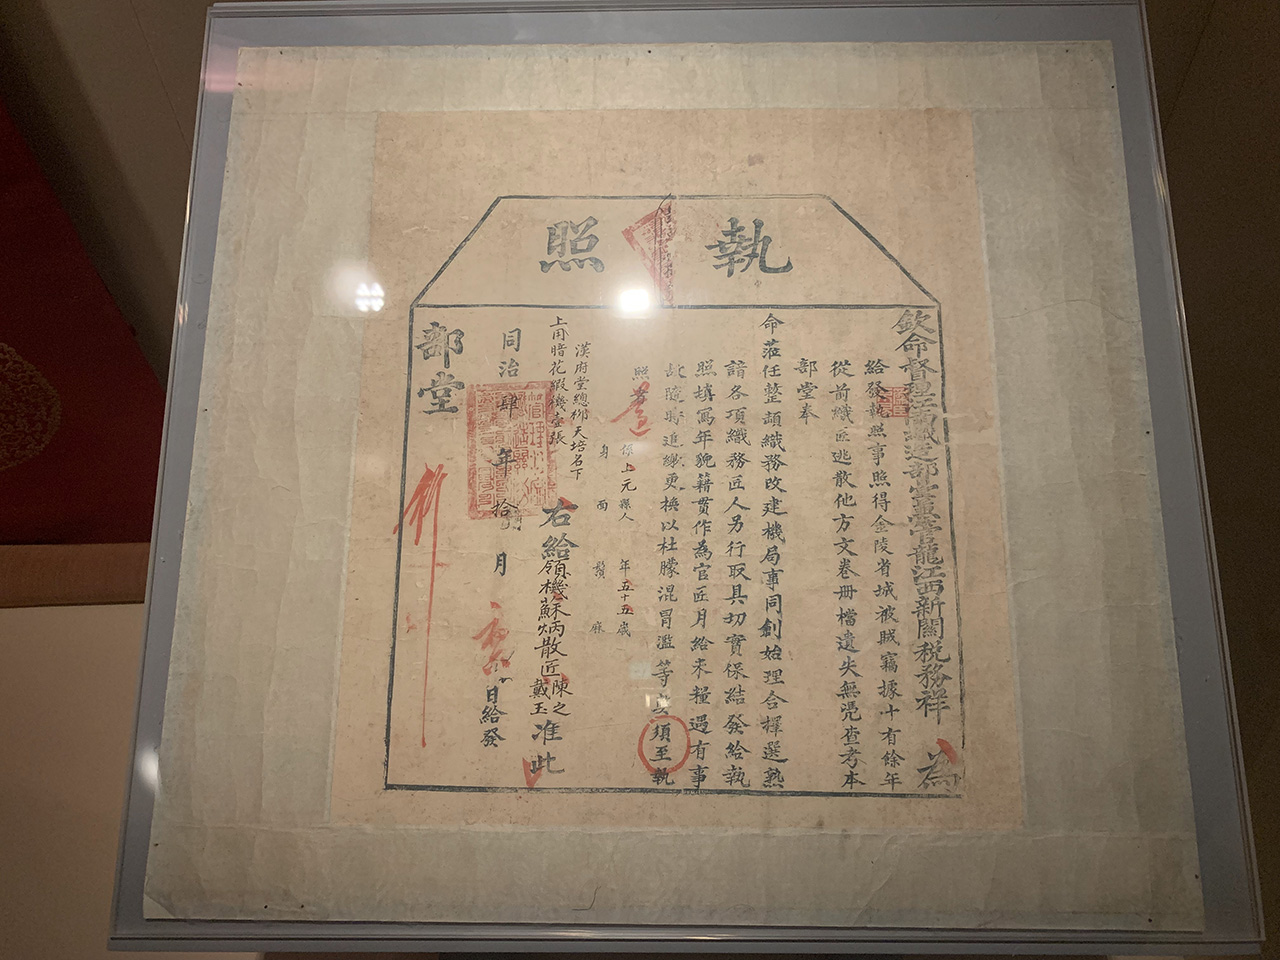 執照
欽命督理江南織造部堂兼管龍江西新關稅務祥 為
給發執照事照得金陵省城被賊竊據十有餘年
從前織匠逃散他方文卷冊檔遺失無凭查考本
部堂奉
命蒞任整頓織務改建機局事同創始理合擇選熟
諳各項織務匠人另行取具切實保結發給執
照填寫年貌籍貫作為官匠月給米糧遇有事
故隨時進繳更換以杜朦混冒濫等 須至執
照者
係上元縣人 年五十五歲
身 面 鬚 麻
漢府堂總 天培名下
上用暗花緞機壹張
右給領機蘇炳散匠陳之戴玉 准此
同治肆年拾 月 日給發
部堂